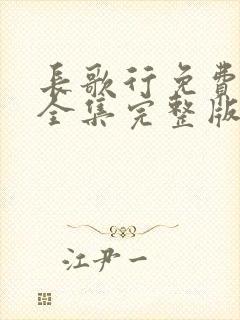 長歌行免費
全集完整版
江尹一